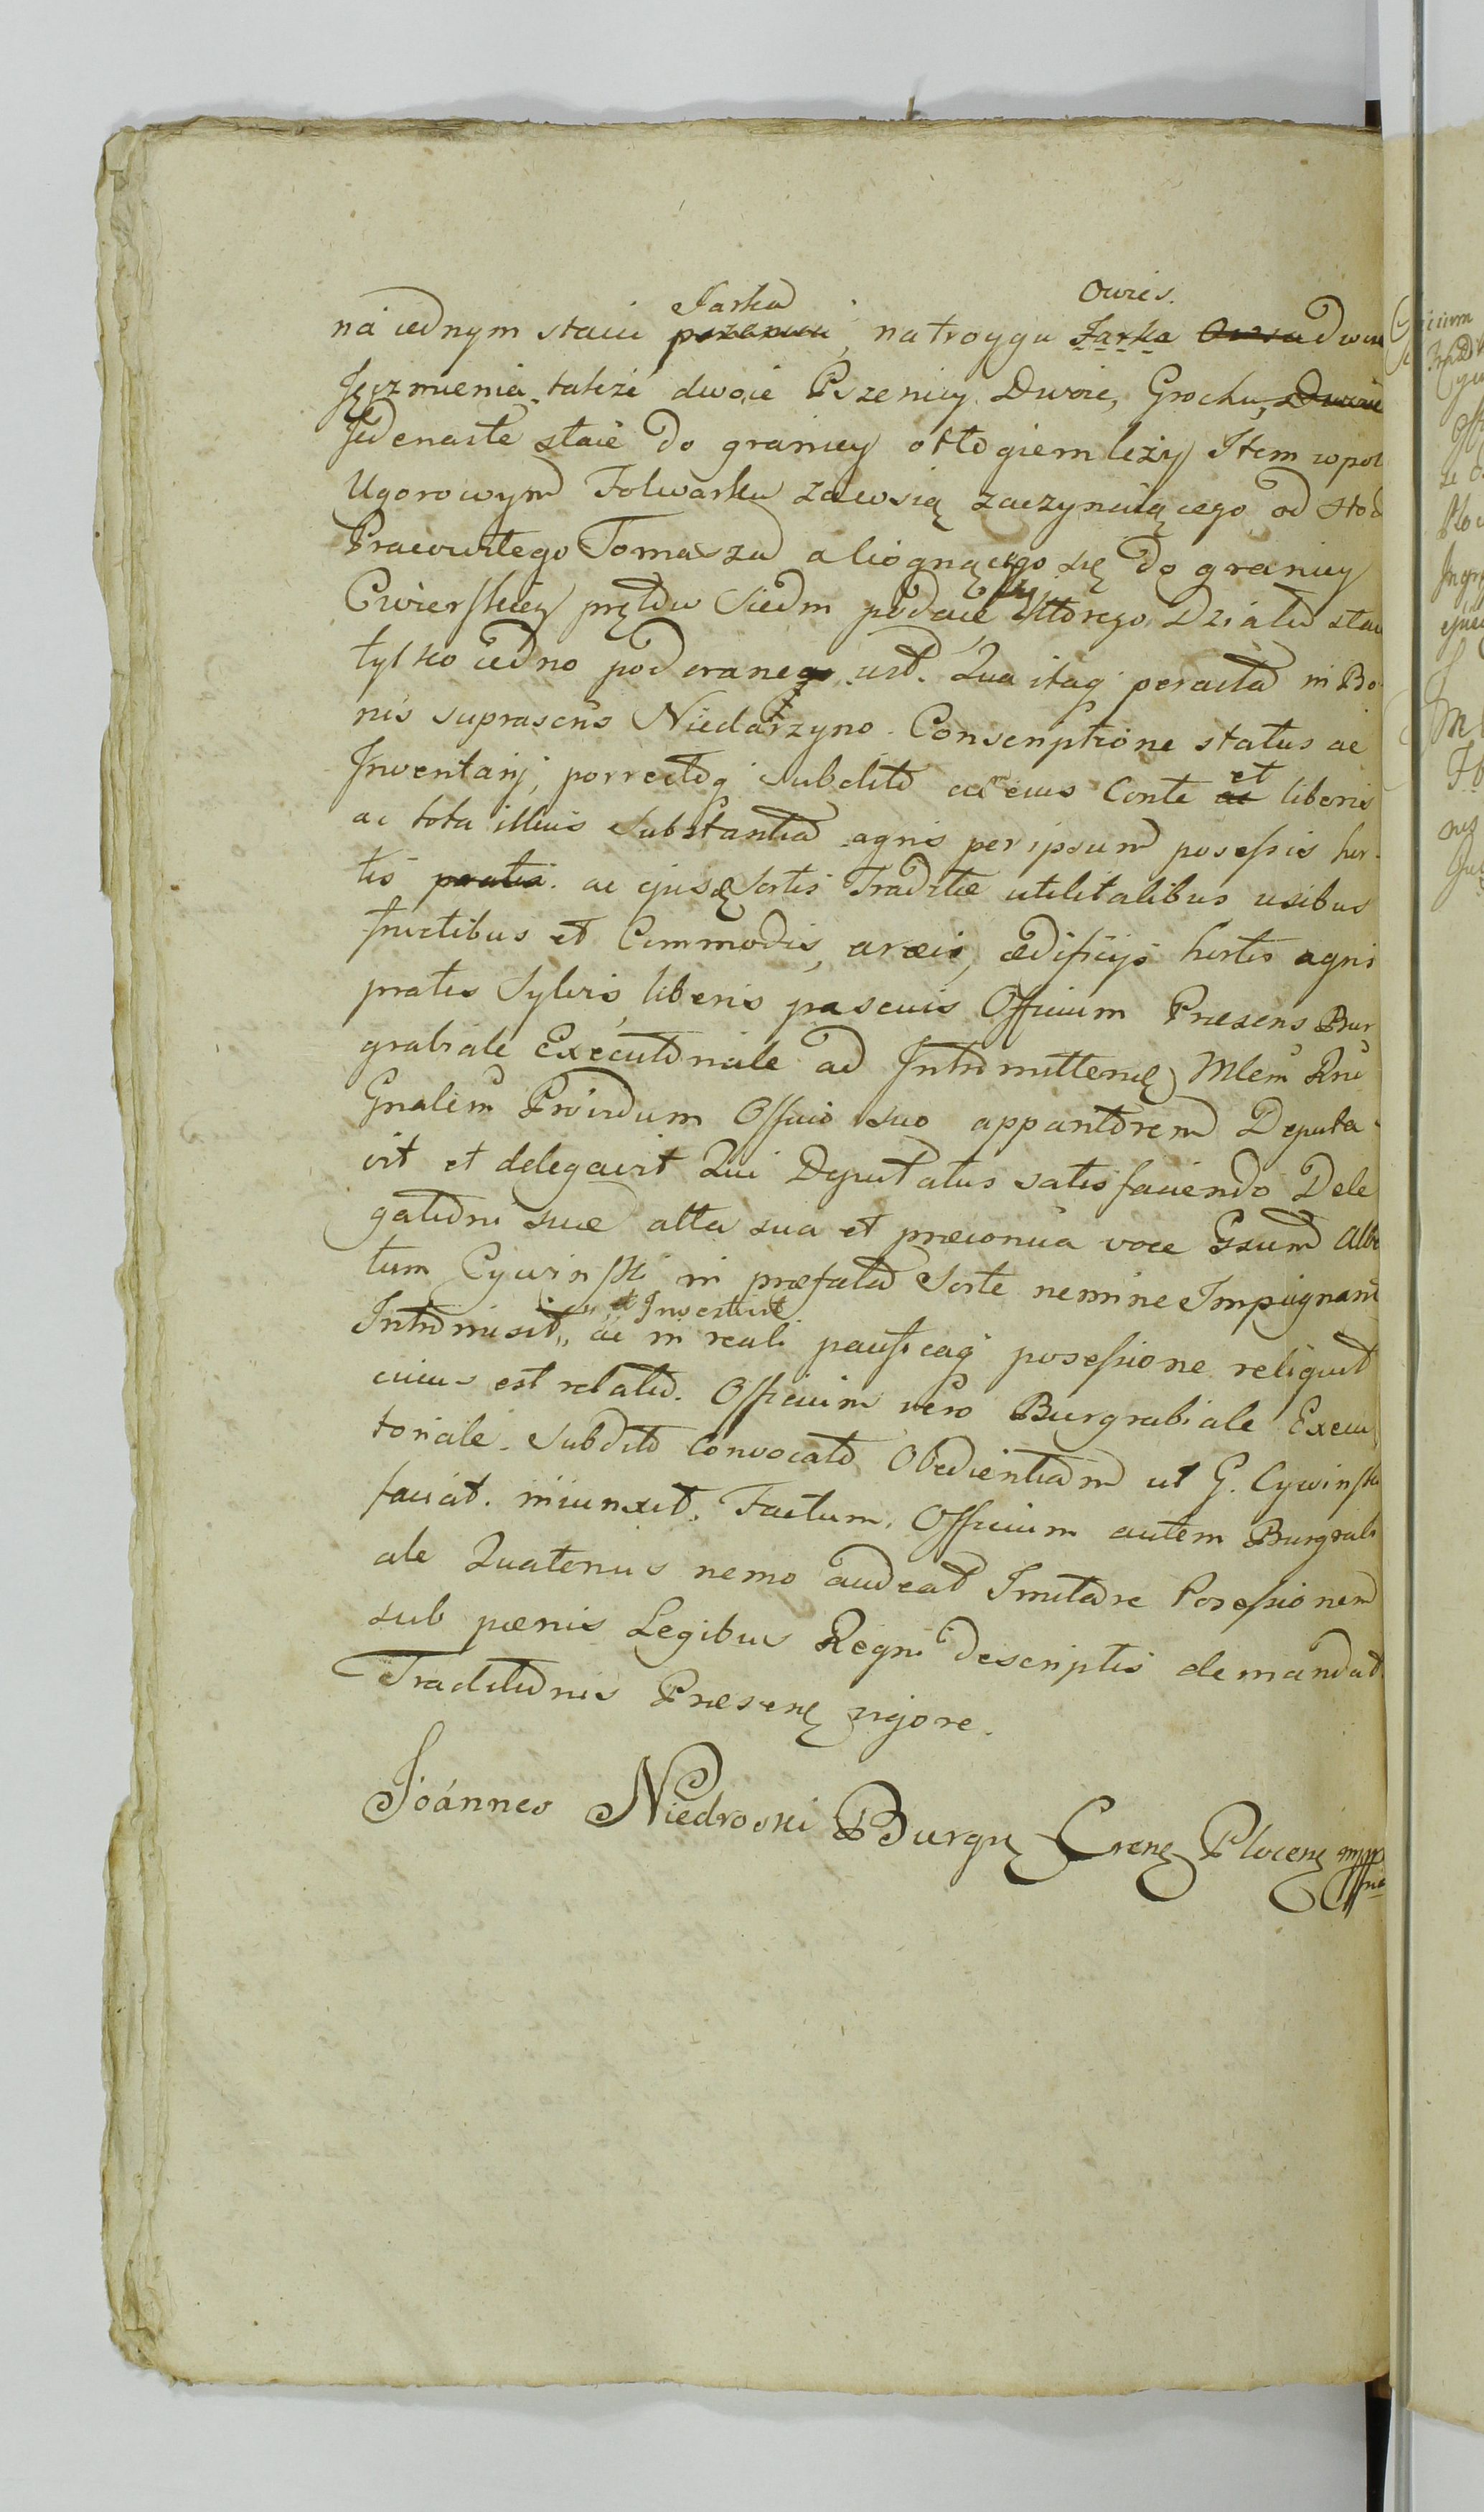 Jarka Owies.
na iednym staiu pszenicy, na troygu Jarka Owsa dwoie
Jęczmienia, takze dwoie Pszenicy Dwoie, Grochu, Dwoie
Jedenaste staie do granicy odłogiem leży Item w pol
Ugorowym Folwarku za wsią zaczynaiącego od stod
Pracowitego Tomasza a ciognącego się do granicy
Cwierskiey prętow Siedm podaie ktorego Działu staie
tylko iedno podorane est. Qua itaq peracta in Bo-
nis suprascris Niedarzyno. Conscriptione status ac
Inventarij, porrectoq subdito acm eius Conte ac et liberis
ac tota illius substantia agris per ipsum possessis hor-
tis pratis ac ejusq sortis Traditæ utilitatibus usibus
fructibus et Commodis, aræis, ædificijs hortis agris
pratis Sylvis, liberis pascuis Officium Præsens Bur
grabiale Executoriale ad Intromittend Mlem Rni
Gnalem Providum Officio suo apparitorem Deputa-
vit et delegavit Qui Deputatus satisfaciendo Dele
gationi suæ alta sua et præconica voce Gsum Albe
tum Cywinski in præfata Sorte nemine Impugnante
et Investivit
Intromisit, ac in reali pacificaq possessione reliquit
cuius est relatio. Officium vero Burgrabiale Execu
toriale. Subdito Convocato Obedientiam ut G. Cywinski
faciat. iniunxit. Factum. Officium autem Burgrabi
ale Quatenus nemo audeat Irruitare Possessionem
sub pœnis Legibus Regni descriptis demandat
Traditionis Præsens vigore.
Joánnes Niedroski Burgr Crens Plocens mpp